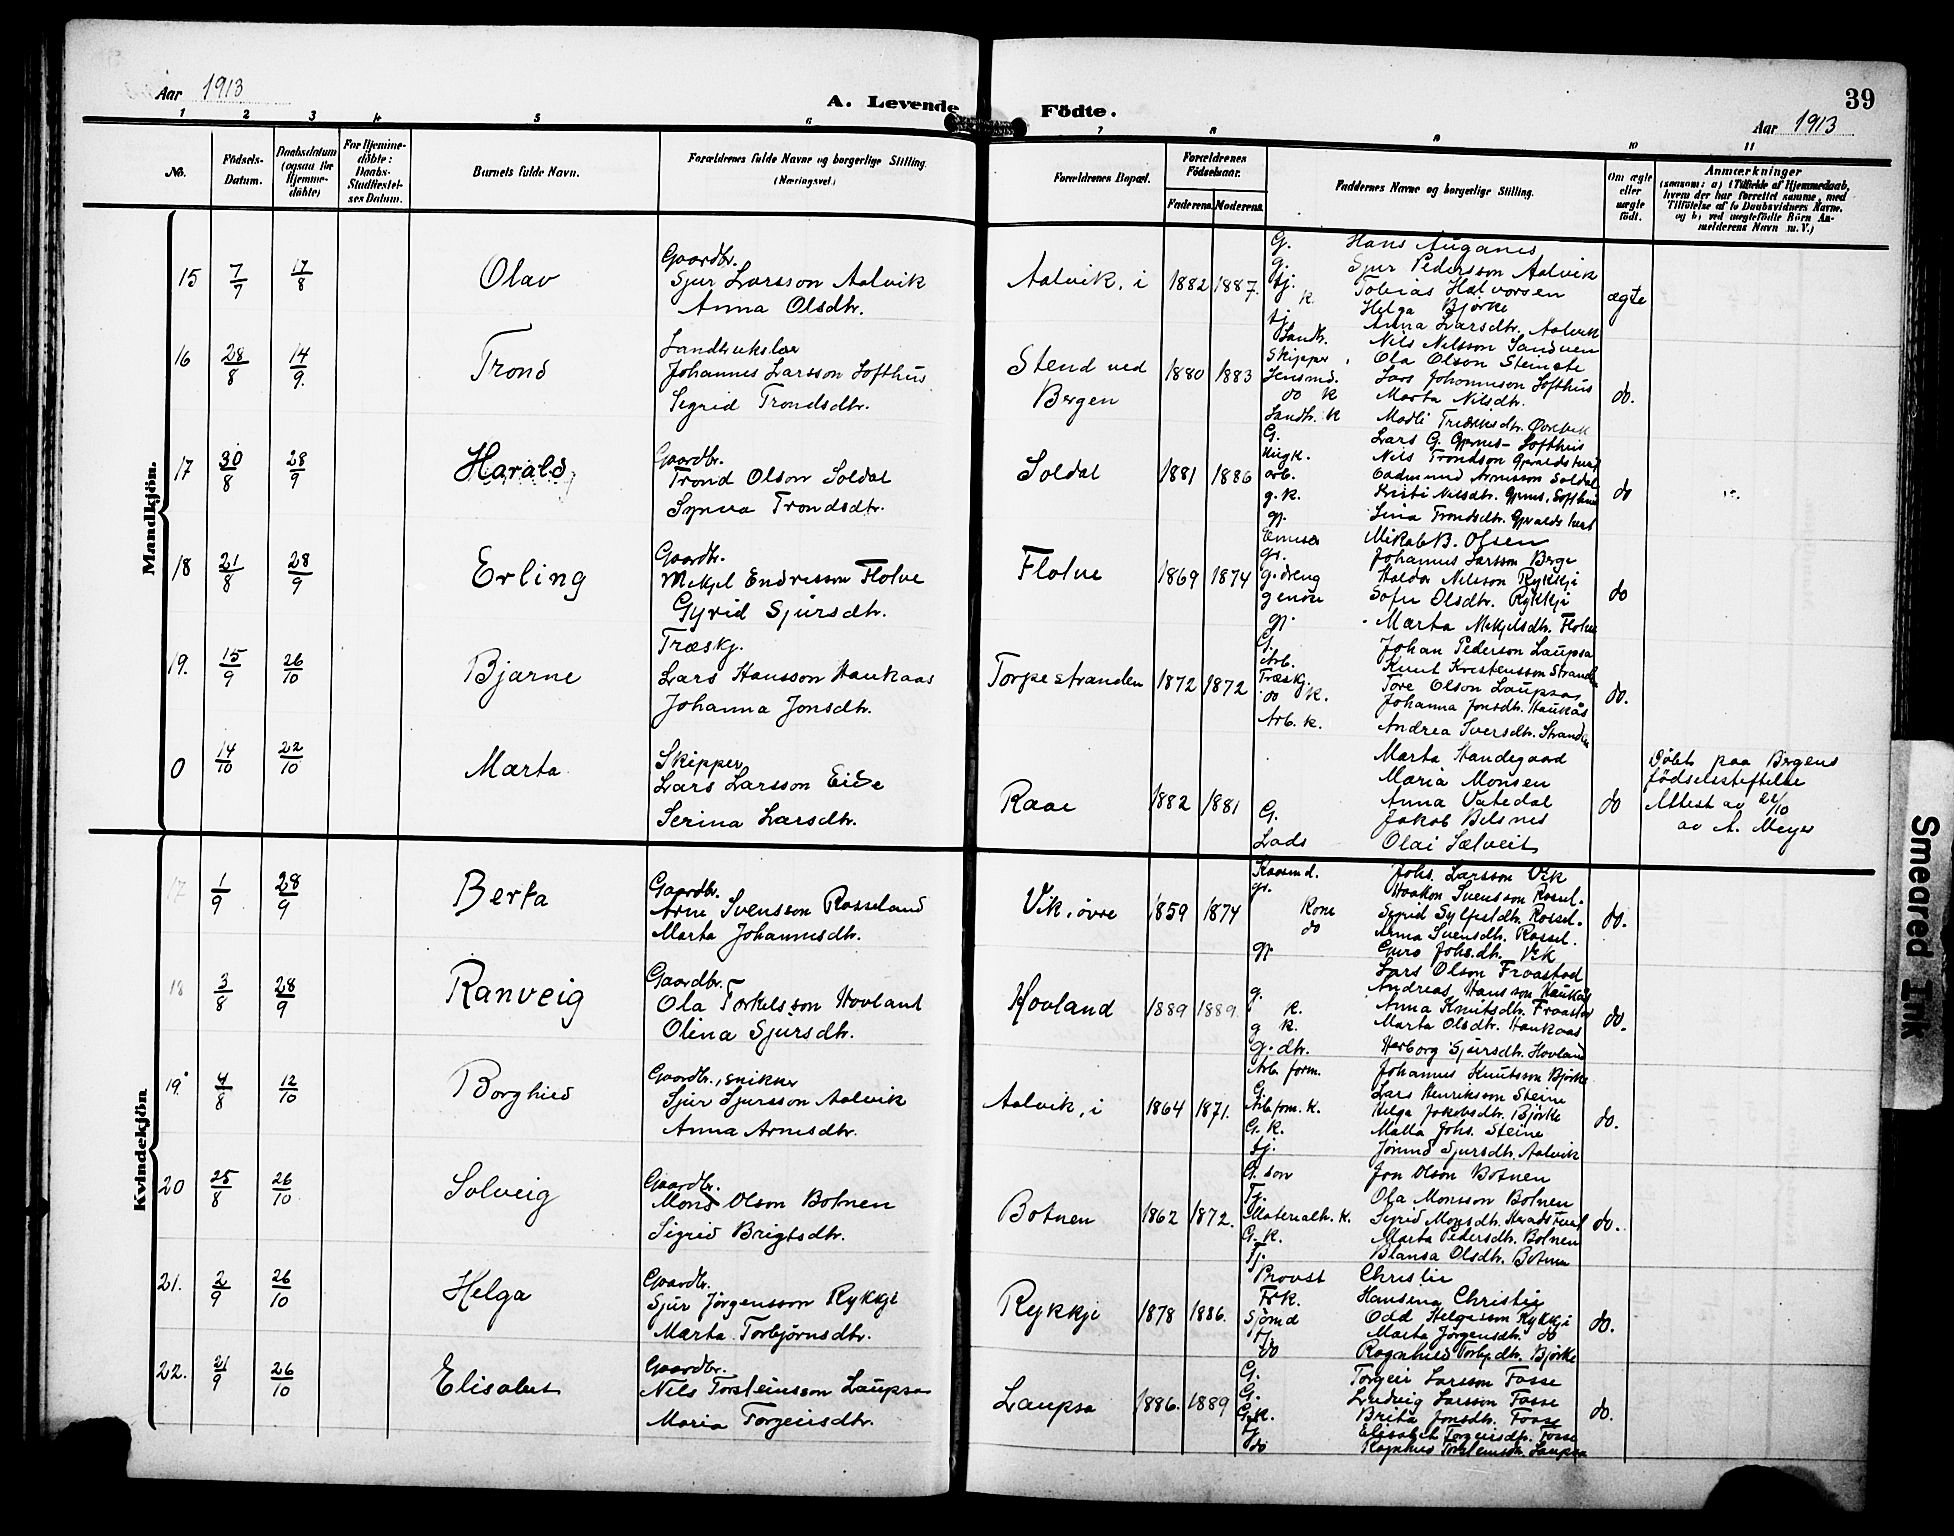 39
Aar 1913
A. Levende Födte.
Aar 1913
1 2 3 4 5 6 7 8 9 10 11
No.
Födsels-Datum.
Daabsdatum (ogsaa for Hjemmedöbte)
For Hjemmedöbte: Daabs-Stadfæstelses Datum.
Barnets fulde Navn.
Forældrenes fulde Navne og borgerlige Stilling. (Næringsvei.)
Forældrenes Bopæl.
Forældrenes Födselsaar.
Faderens. Moderens.
Faddernes Navne og borgerlige Stilling.
Om ægte eller uægte födt.
Anmærkninger
(saasom: a) i Tilfælde af Hjemmedaab, hvem der har forrettet samme, med Tilföielse af to Daabsvidners Navne, og b) ved uægtefödte Börn Anmelderens Navn m. V.)
Mandkjön.
15 7/7 17/8 Olav
Gaardbr.
Sjur Larsson Aalvik
Anna Olsdtr.
Aalvik, i 1882 1887.
G. Hans Auganes
g. Sjur Pedersson Aalvik
tj. Tobias Halvorsen
k. Helga Björke
tj. Anna Larsdtr. Aalvik
ægte
16 28/8 14/9. Trond
Johannes Larsson Lofthus
Sigrid Trondsdtr.
Stend ved
Bergen
1880 1883
Landh. Nils Nilsson Sandven
Skipper Ola Olson Steinste
Lars Johannsson Lofthus
do k Marta Nilsdtr.
Landh. k
do.
17 30/8 28/9 Harald
Gaardbr.
Trond Olson Soldal
Synva Trondsdtr.
Soldal 1881 1886
G. Lars G. Gjernes- Lofthus
Nils Trondson
arb. Gudmund Arnesson Soldal
g. k. Kristi Nilsdtr. Gjernes, Lofthus
gp. Lina Trondsdtr.
do
18 21/8 28/9 Erling
Gaardbr.
Mikjel Endresson Flotve
Gyrid Sjursdtr.
Flotve 1869 1874
Emisær Mikal B. Olsen
gr. Johannes Larsson Berge
g. dreng Haldor Nilsson Rykkje
Sofie Olsdtr. Rykkje
gp. Marta Mikjelsdtr. Flotve
do
19. 15/9 26/10 Bjarne
Træskj.
Lars Hansson Haukaas
Johanna Jonsdtr.
Torpestranden 1872 1872
G. Johan Pederson Laupsa
Arb. Knut Kristensson Stranden
Træskj. Tore Olson Laupsa
do k. Johanna Jonsdtr. Haukås
Arb. k. Andrea Iversdtr. Stranden
do.
0 14/10 22/10 Marta
Skipper
Lars Larsson Eide
Serina Larsdtr.
Raae 1882 1881
Marta Handegaard
Maria Monsen
Anna Vatedal
G. Jakob Bilsnes
Lods Olai Sælveit
do
Döbt paa Bergens
födselsstiftelse
Attest av 22/10
av A. Meyer
Kvindekjön
17 1/9 28/9 Berta
Gaardbr.
Arne Svensson Rosseland
Marta Johannesdtr.
Vik, øvre 1859 1874
Kaasmd. Johs. Larsson Vik
gr. Haakon Svensson Rossel.
Kone Sigrid Sylfestdtr. Rossel.
do Anna Svensdtr. Rossel.
gp Guro Johs.dtr. Vik
do.
18 3/8 28/9 Ranveig
Gaardbr.
Ola Torkelsson Hovland
Olina Sjursdtr.
Hovland 1889 1889.
Lars Olson Fraastad
g. Andreas Hansson Haukås
k. Anna Knutsdtr. Fraastad
g k. Marta Olsdtr. Haukaas
g. dtr. Herborg Sjursdtr. Hovland
do.
19. 4/8 12/10 Borghild
Gaardbr., snikker
Sjur Sjursson Aalvik
Anna Arnesdtr.
Aalvik, i 1864 1871.
Arb. form. Johannes Knutsson Björke
G. Lars Henrikson Steine
Arb. fom. k. Helga Jakobsdtr. Björke
G. k. Malla Johs. Steine
tj. Jorund Sjursdtr. Aalvik
do.
20 25/8 26/10 Solveig
Gaardbr.
Mons Olson Botnen
Sigrid Brigtsdtr.
Botnen 1862 1872.
G. son Jon Olson Botnen
Tj. Ola Monsson Botnen
Materialh. k. Sigrid Monsdtr. Heradstveit
G. k. Marta Pedersdtr. Botnen
Tj. Blansa Olsdtr. Botnen
do.
21. 2/9 26/10 Helga
Gaardbr.
Sjur Jørgensson Rykkje
Marta Torbjørnsdtr.
Rykkje 1878 1886.
Provst Christie
Frk. Hansina Christie
Sjömd Odd Helgesson Rykkje
tj. Marta Jørgensdtr. do
do Ragnhild Torbj.dtr. Björke
do.
22. 21/9 26/10 Elisabet
Gaardbr.
Nils Torsteinsson Laupsa
Maria Torgeirsdtr.
Laupsa 1886. 1889
G. Torgeir Larsson Fosse
G. Ludvig Larsson Fosse
G. k. Brita Jonsdtr. Fosse
tj Elisabet Torgeirsdtr. Fosse
do Ragnhild Torsteinsdtr. Laupsa
do.
Smeared Ink